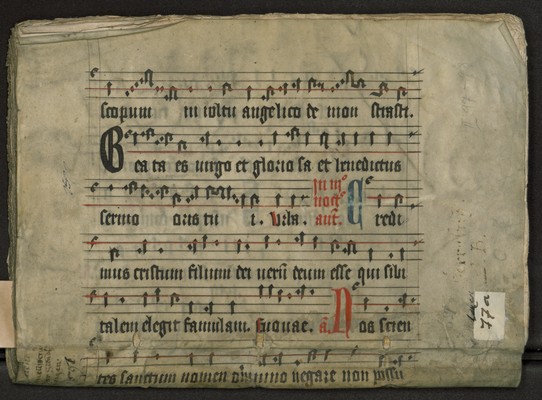 scopum in vultu angelico de mon strasti.
Bea ta es virgo et glorio sa et benedictus
sermo oris tu i. V̄rsa. In iijo noct̄o añt. C redi
mus cristum filium dei verū deum esse qui sibi
talem elegit famulam. Euouae. añ Nos scien
tes sanctum nomen omnino negare non possu
77a